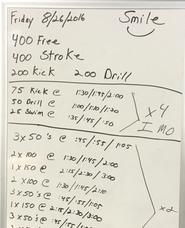 Friday 8/26/2016 Smile
400 Free
400 Stroke
200 Kick 200 Drill
75 Kick @ 1:30/1:45/2:00
50 Drill @ 1:00/1:10/1:20
25 Swim @ :35/:45/:50
x4
IMO
3 x 50's @ :45/:55/1:05
2 x 100 @ 1:30/1:45/2:00
1 x 150 @ 2:15/2:30/3:00
2 x 100 @ 1:30/1:45/2:10
3 x 50's @ :45/:55/1:05
1 x 150 @ 2:15/2:30/3:00
3 x 50's @ :45/:55/1:05
x2